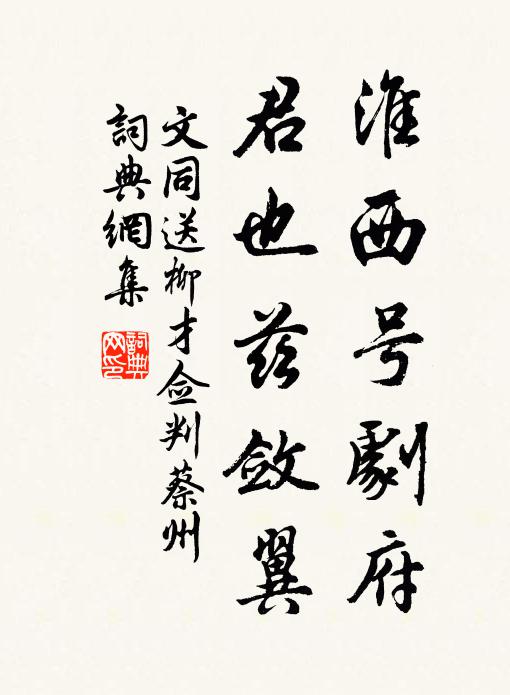 淮西号劇府
君也茲斂翼
文同送柳才佥判蔡州
詞典網集
詞典網印